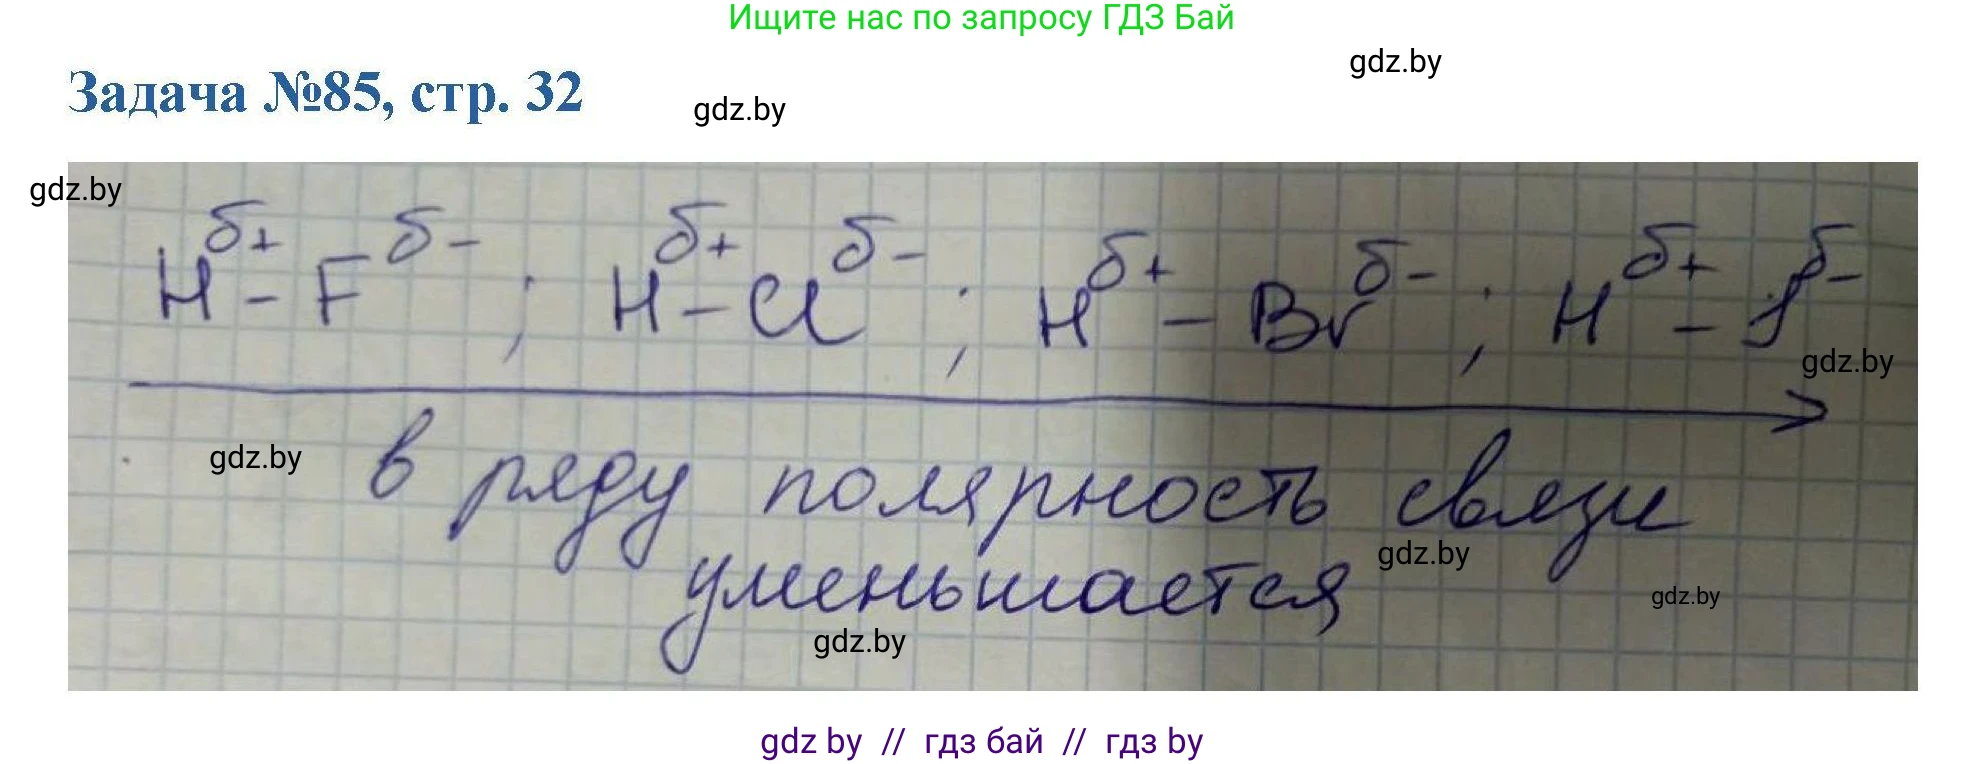 Ищите нас по запросу ГДЗ Бай
gdz.by
Задача №85, стр. 32
gdz.by
gdz.by
H^δ+ – F^δ- ; H^δ+ – Cl^δ- ; H^δ+ – Br^δ- ; H^δ+ – J^δ-
gdz.by
в ряду полярность связи
gdz.by
уменьшается
gdz.by
gdz.by
gdz.by
gdz by // гдз бай // гдз by